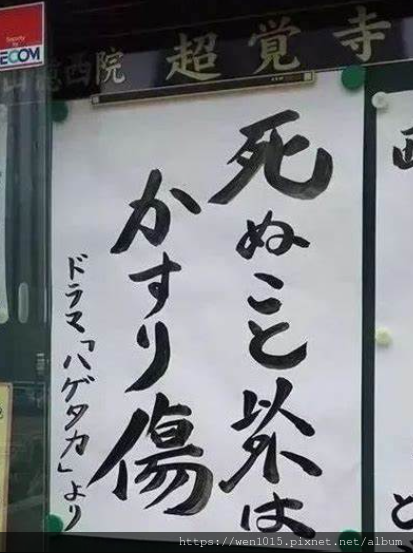 Security by
ECOM
西院 超覚寺
死ぬこと以外は
かすり傷
ドラマ「ハゲタカ」より
と
https://wen1015.pixnet.net/album